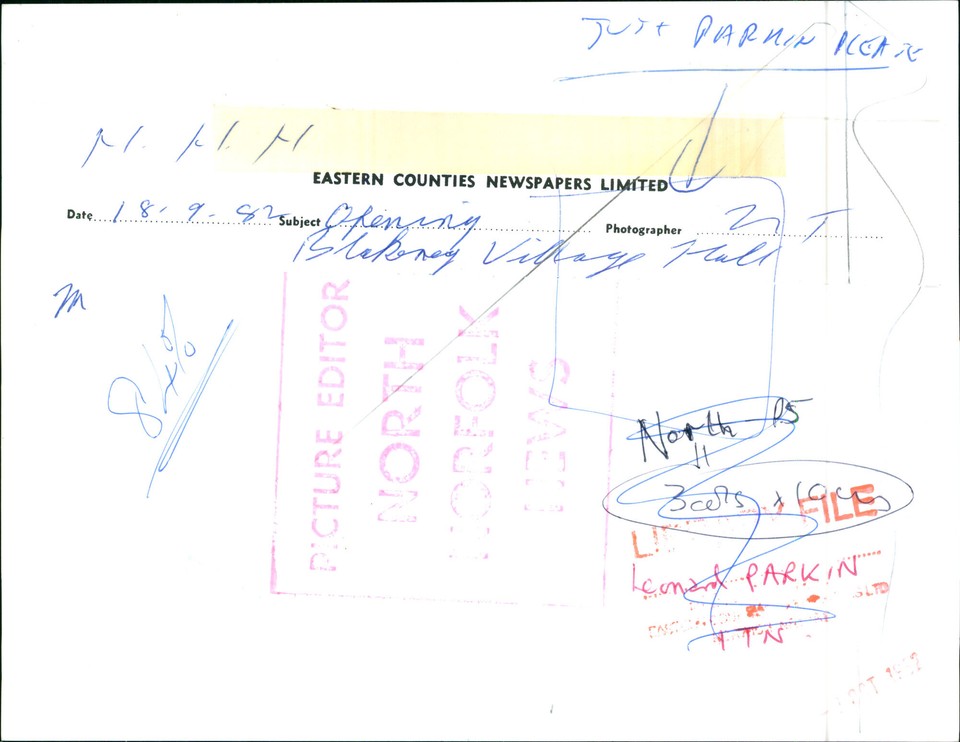 JUST PARKIN PLEASE
EASTERN COUNTIES NEWSPAPERS LIMITED
Date 18.9.82 Subject Opening Photographer
Blakeney Village Hall
PICTURE EDITOR
NORTH
NORFOLK
NEWS
North P5
3 cols x 19cm
FILE
Leonard PARKIN
LTD
ITN.
OCT 1982